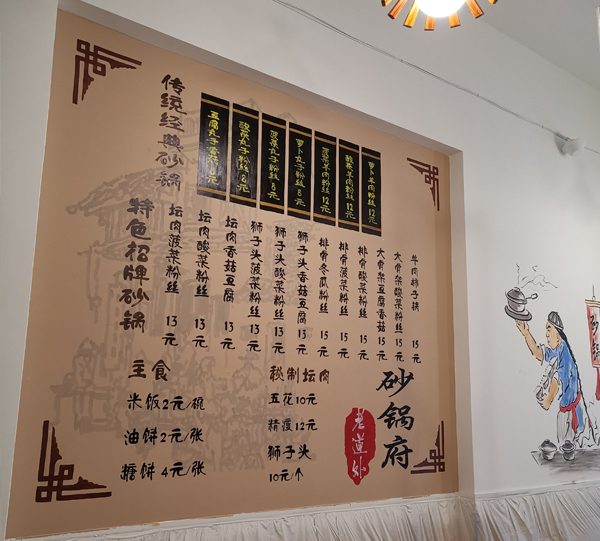 传统经典砂锅
豆腐丸子香菇8元
酸菜丸子粉丝8元
菠菜丸子粉丝8元
萝卜丸子粉丝8元
菠菜羊肉粉丝12元
酸菜羊肉粉丝12元
萝卜羊肉粉丝12元
特色招牌砂锅
坛肉菠菜粉丝 13元
坛肉酸菜粉丝 13元
坛肉香菇豆腐 13元
狮子头菠菜粉丝 13元
狮子头酸菜粉丝 13元
狮子头香菇豆腐 13元
排骨冬瓜粉丝 15元
排骨菠菜粉丝 15元
排骨酸菜粉丝 15元
大骨棠豆腐香菇 15元
大骨棠酸菜粉丝 15元
牛肉柿子锅 15元
主食
米饭2元/碗
油饼2元/张
糖饼4元/张
秘制坛肉
五花10元
精瘦12元
狮子头
10元/个
砂锅府
老道外